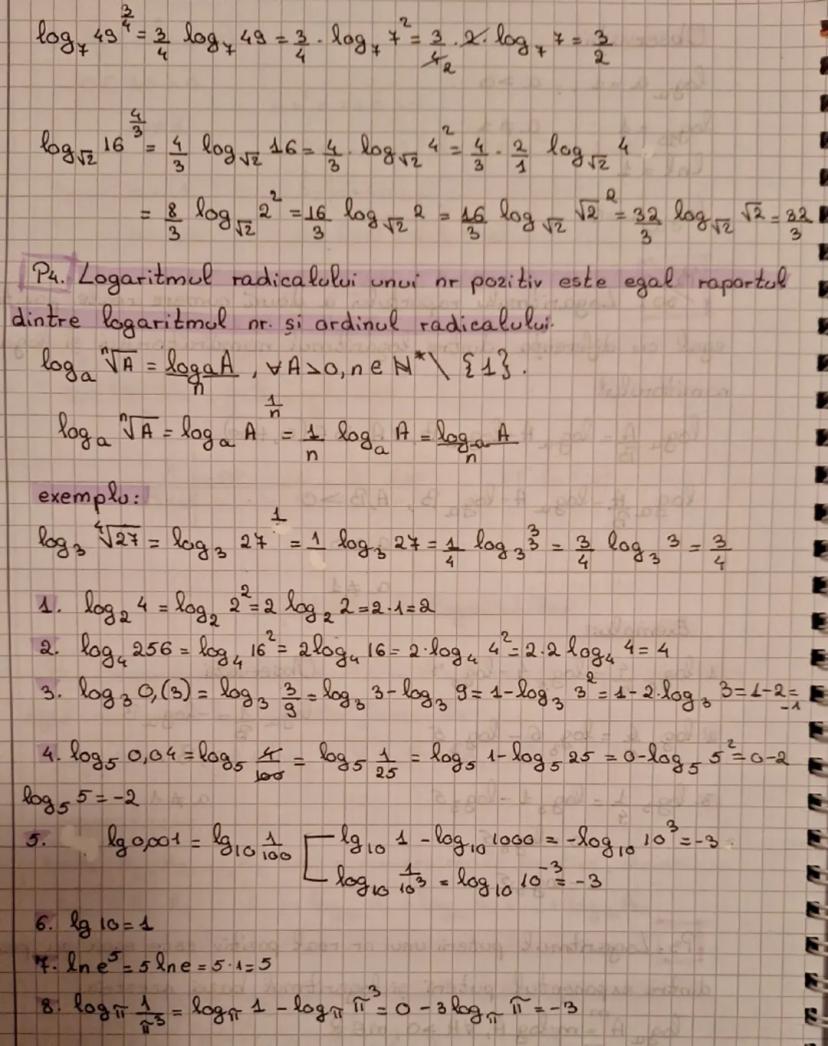 log₇ 49^(3/4) = 3/4 log₇ 49 = 3/4 · log₇ 7² = 3/4̶₂ · 2̶ · log₇ 7 = 3/2
log_√2 16^(4/3) = 4/3 log_√2 16 = 4/3 · log_√2 4² = 4/3 · 2/1 log_√2 4
= 8/3 log_√2 2² = 16/3 log_√2 2 = 16/3 log_√2 √2² = 32/3 log_√2 √2 = 32/3
P4. Logaritmul radicalului unui nr pozitiv este egal raportul
dintre logaritmul nr. și ordinul radicalului.
logₐ ⁿ√A = logₐA/n , ∀A>0, n∈ℕ* \ {1}.
logₐ ⁿ√A = logₐ A^(1/n) = 1/n logₐ A = logₐ A/n
exemplu:
log₃ ⁴√27 = log₃ 27^1 = 1 log₃ 27 = 1/4 log₃ 3³ = 3/4 log₃ 3 = 3/4
1. log₂ 4 = log₂ 2² = 2 log₂ 2 = 2·1 = 2
2. log₄ 256 = log₄ 16² = 2log₄ 16 = 2·log₄ 4² = 2·2 log₄ 4 = 4
3. log₃ 0,(3) = log₃ 3/9 = log₃ 3 - log₃ 9 = 1 - log₃ 3² = 1 - 2·log₃ 3 = 1-2 = -1
4. log₅ 0,04 = log₅ 4̶/1̶0̶0̶ = log₅ 1/25 = log₅ 1 - log₅ 25 = 0 - log₅ 5² = 0-2
log₅ 5 = -2
5. lg 0,001 = lg₁₀ 1/100 lg₁₀ 1 - log₁₀ 1000 = -log₁₀ 10³ = -3
log₁₀ 1/10³ = log₁₀ 10⁻³ = -3
6. lg 10 = 1
7. ln e⁵ = 5 ln e = 5·1 = 5
8. log_π 1/π³ = log_π 1 - log_π π³ = 0 - 3 log_π π = -3